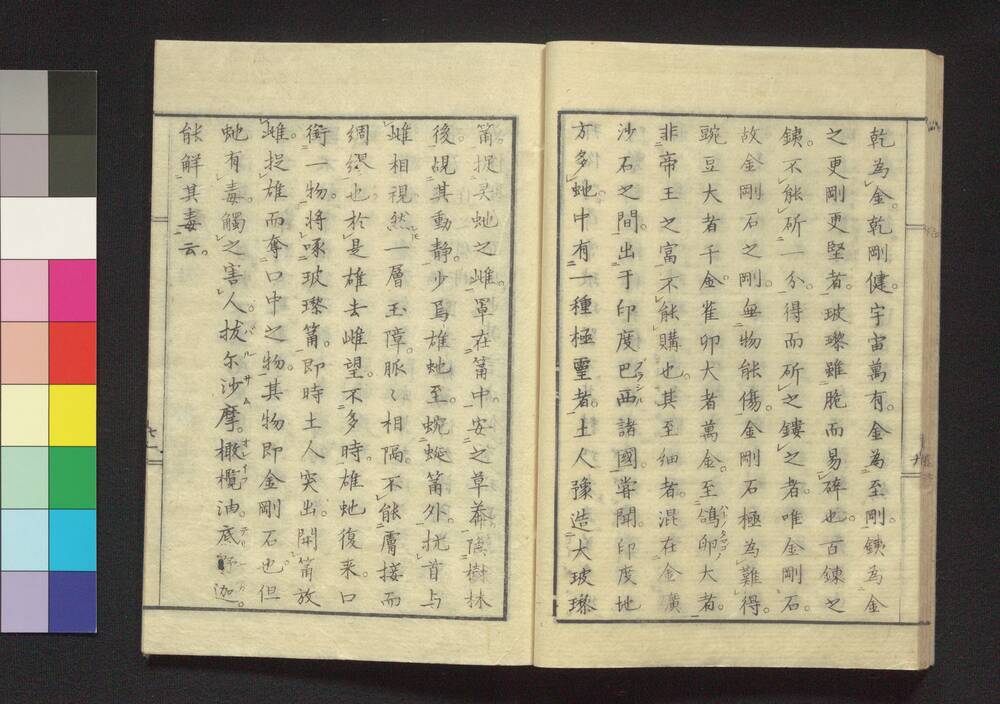 乾為金。乾剛健。宇宙萬有。金為至剛。鉄為金
之更剛更堅者。玻瓈雖脆而易碎也。百錬之
鉄。不能斫一分。得而斫之鏤之者。唯金剛石。
故金剛石之剛。無物能傷。金剛石極為難得。
豌豆大者千金。雀卵大者萬金。至鴿卵大者。
非帝王之富不能購也。其至細者。混在金礦
沙石之間。出于印度巴西諸國。嘗聞。印度地
方多虵。中有一種極霊者。土人豫造大玻瓈
筩。捉灵虵之雌。罩在筩中。安之草莽。隠樹林
後。覘其動静。少焉雄虵至。蜿蜒筩外。挽首与
雌相視。然一層玉障。脈〻相隔。不能膚接而
綢繆也。於是雄去雌望。不多時。雄虵復来。口
銜一物。将啄玻瓈筩。即時土人突出。開筩放
雌。捉雄而奪口中之物。其物即金剛石也。但
虵有毒。觸之害人。拔尔沙摩。橄欖油。底野迦。
能解其毒云。